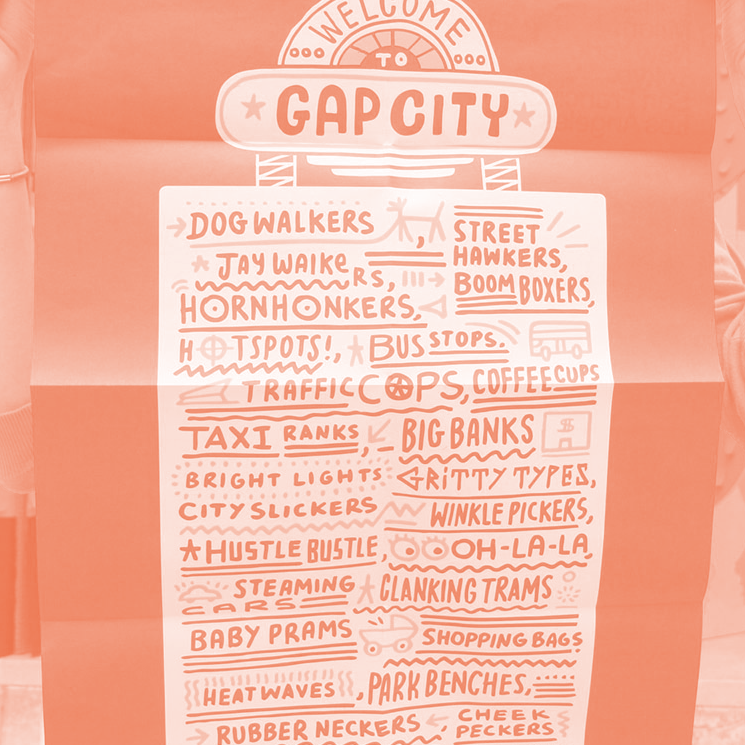 WELCOME
TO
GAP CITY
DOG WALKERS,
STREET
HAWKERS,
JAY WALKeRS,
BOOM BOXERS,
HORNHONKERS,
HOTSPOTS!, BUS STOPS.
TRAFFIC COPS, COFFEE CUPS
TAXI RANKS, BIG BANKS
$
BRIGHT LIGHTS GRiTTY TYPES,
CITY SLICKERS WINKLE PICKERS,
HUSTLE BUSTLE, OH-LA-LA,
STEAMING
CARS
CLANKING TRAMS
BABY PRAMS SHOPPING BAGS
HEATWAVES, PARK BENCHES,
RUBBER NECKERS,
CHEEK
PECKERS